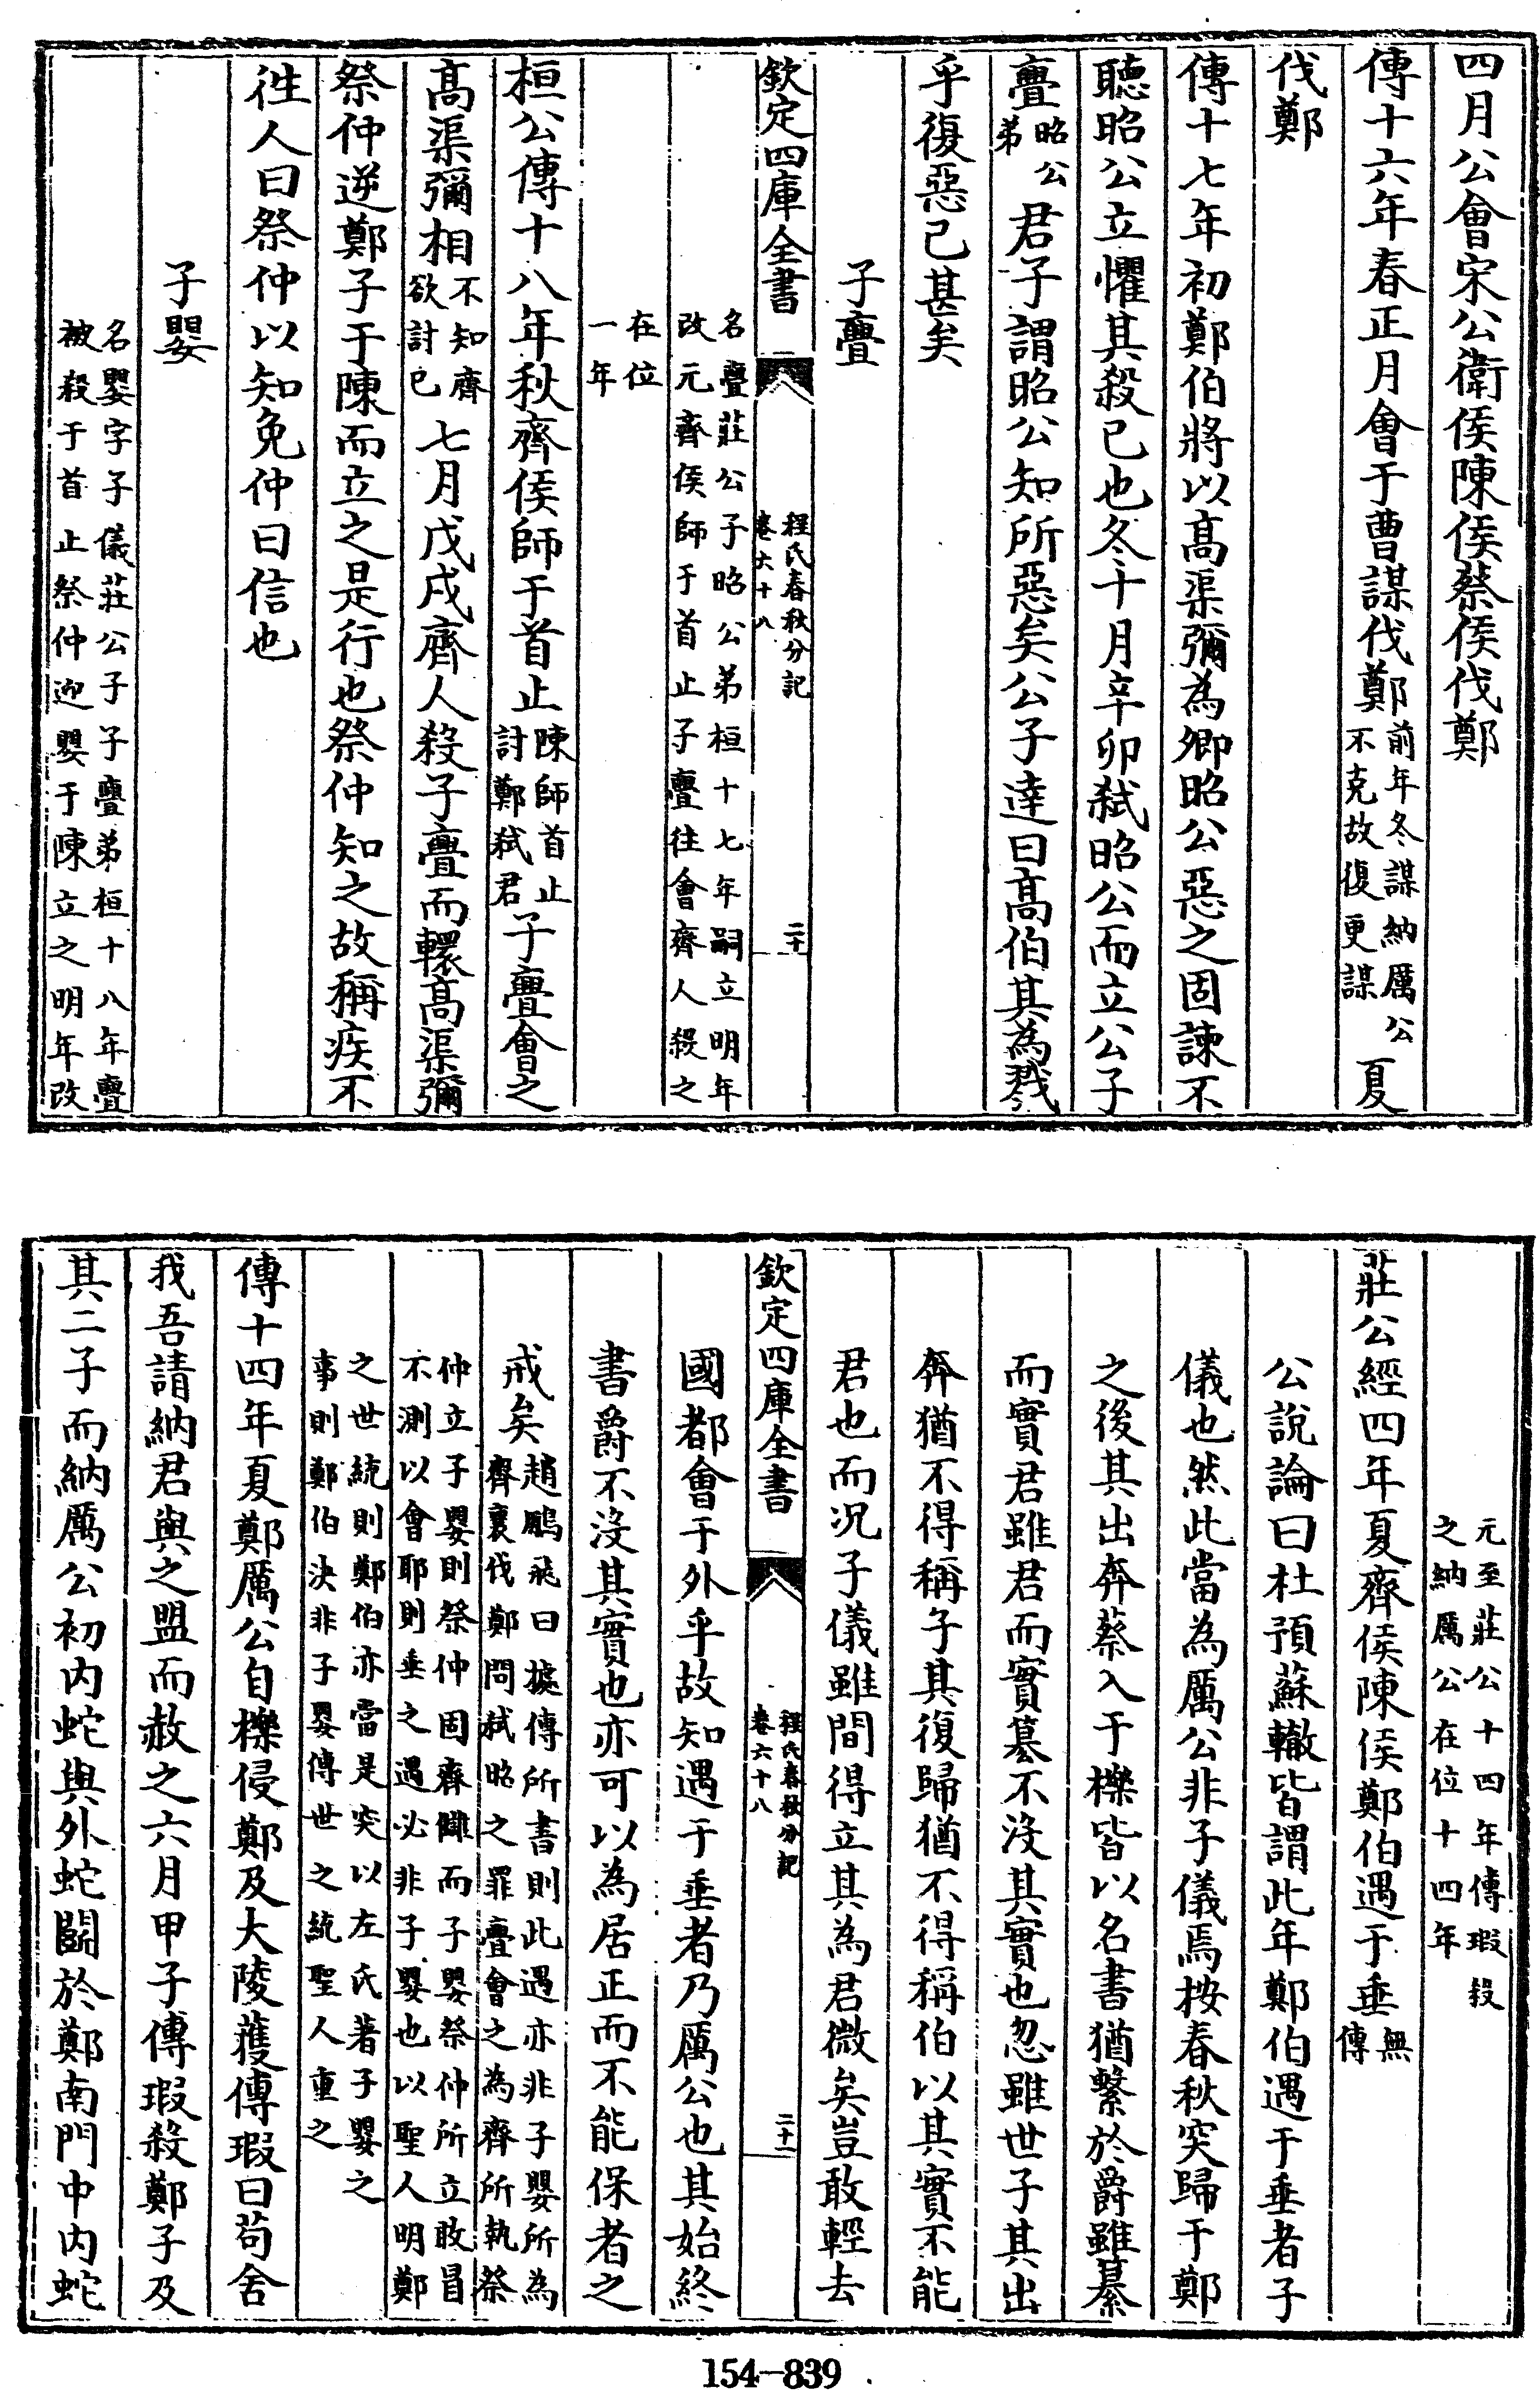 四月公會宋公衛侯陳侯蔡侯伐鄭
傳十六年春正月會于曹謀伐鄭前年冬謀納厲公不克故復更謀夏
伐鄭
傳十七年初鄭伯將以髙渠彌為卿昭公惡之固諫不
聽昭公立懼其殺已也冬十月辛卯弑昭公而立公子
亹昭公弟君子謂昭公知所惡矣公子達曰髙伯其為戮
乎復惡已甚矣
子亹
欽定四庫全書
程氏春秋分記
卷六十八
二十
名亹莊公子昭公弟桓十七年嗣立明年
改元齊侯師于首止子亹往會齊人殺之
在位
一年
桓公傳十八年秋齊侯師于首止陳師首止討鄭弑君子亹會之
髙渠彌相不知齊欲討已七月戊戌齊人殺子亹而轘髙渠彌
祭仲逆鄭子于陳而立之是行也祭仲知之故稱疾不
徃人曰祭仲以知免仲曰信也
子嬰
名嬰字子儀莊公子子亹弟桓十八年亹
被殺于首止祭仲迎嬰于陳立之明年改
元至莊公十四年傳瑕殺
之納厲公在位十四年
莊公經四年夏齊侯陳侯鄭伯遇于垂無傳
公說論曰杜預蘇轍皆謂此年鄭伯遇于垂者子
儀也然此當為厲公非子儀焉按春秋突歸于鄭
之後其出奔蔡入于櫟皆以名書猶繫於爵雖纂
而實君雖君而實纂不沒其實也忽雖世子其出
奔猶不得稱子其復歸猶不得稱伯以其實不能
君也而况子儀雖間得立其為君微矣豈敢輕去
欽定四庫全書
程氏春秋分記
卷六十八
二十一
國都會于外乎故知遇于垂者乃厲公也其始終
書爵不沒其實也亦可以為居正而不能保者之
戒矣趙鵬飛曰據傳所書則此遇亦非子嬰所為齊襄伐鄭問弑昭之罪亹會之為齊所執祭
仲立子嬰則祭仲固齊讎而子嬰祭仲所立敢冒
不測以會耶則垂之遇必非子嬰也以聖人明鄭
之世統則鄭伯亦當是突以左氏著子嬰之
事則鄭伯決非子嬰傳世之統聖人重之
傳十四年夏鄭厲公自櫟侵鄭及大陵䕶傳瑕曰苟舍
我吾請納君與之盟而赦之六月甲子傳瑕殺鄭子及
其二子而納厲公初内蛇與外蛇鬭於鄭南門中内蛇
154-839